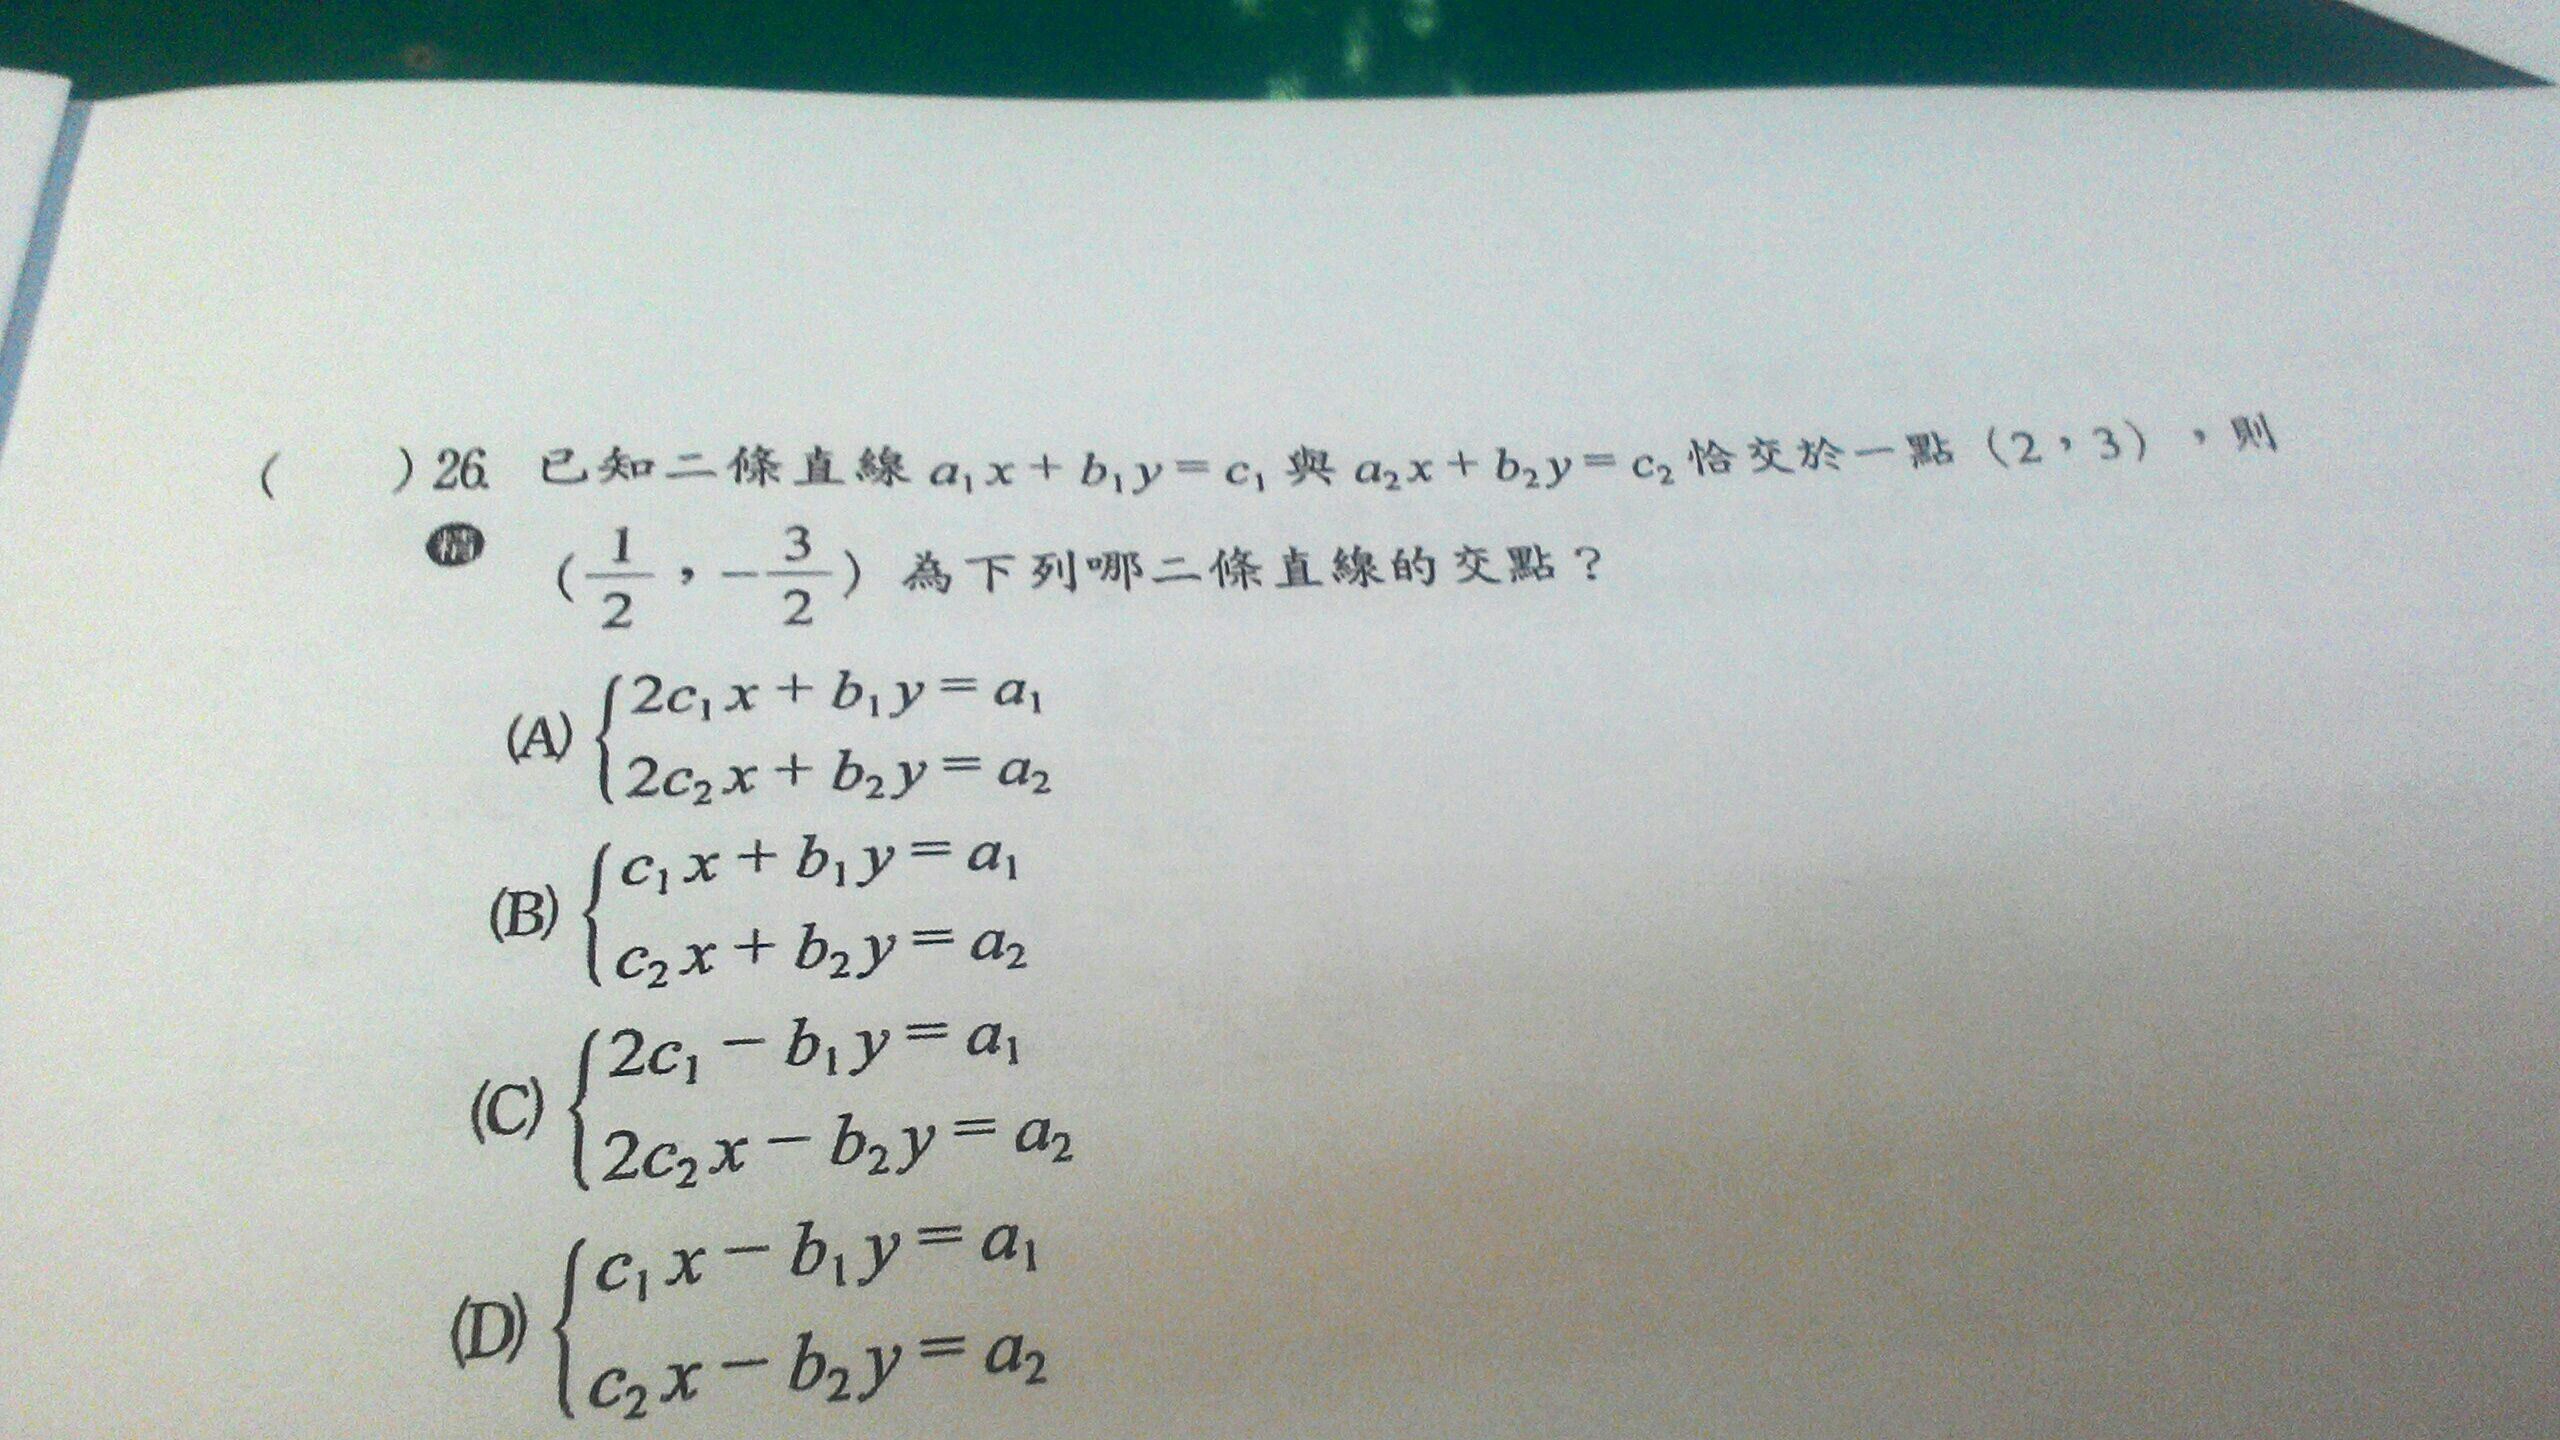 (    ) 26. 已知二條直線 a₁x + b₁y = c₁ 與 a₂x + b₂y = c₂ 恰交於一點 (2, 3),則
精 (1/2, −3/2) 為下列哪二條直線的交點?
(A) { 2c₁x + b₁y = a₁
2c₂x + b₂y = a₂
(B) { c₁x + b₁y = a₁
c₂x + b₂y = a₂
(C) { 2c₁ − b₁y = a₁
2c₂x − b₂y = a₂
(D) { c₁x − b₁y = a₁
c₂x − b₂y = a₂